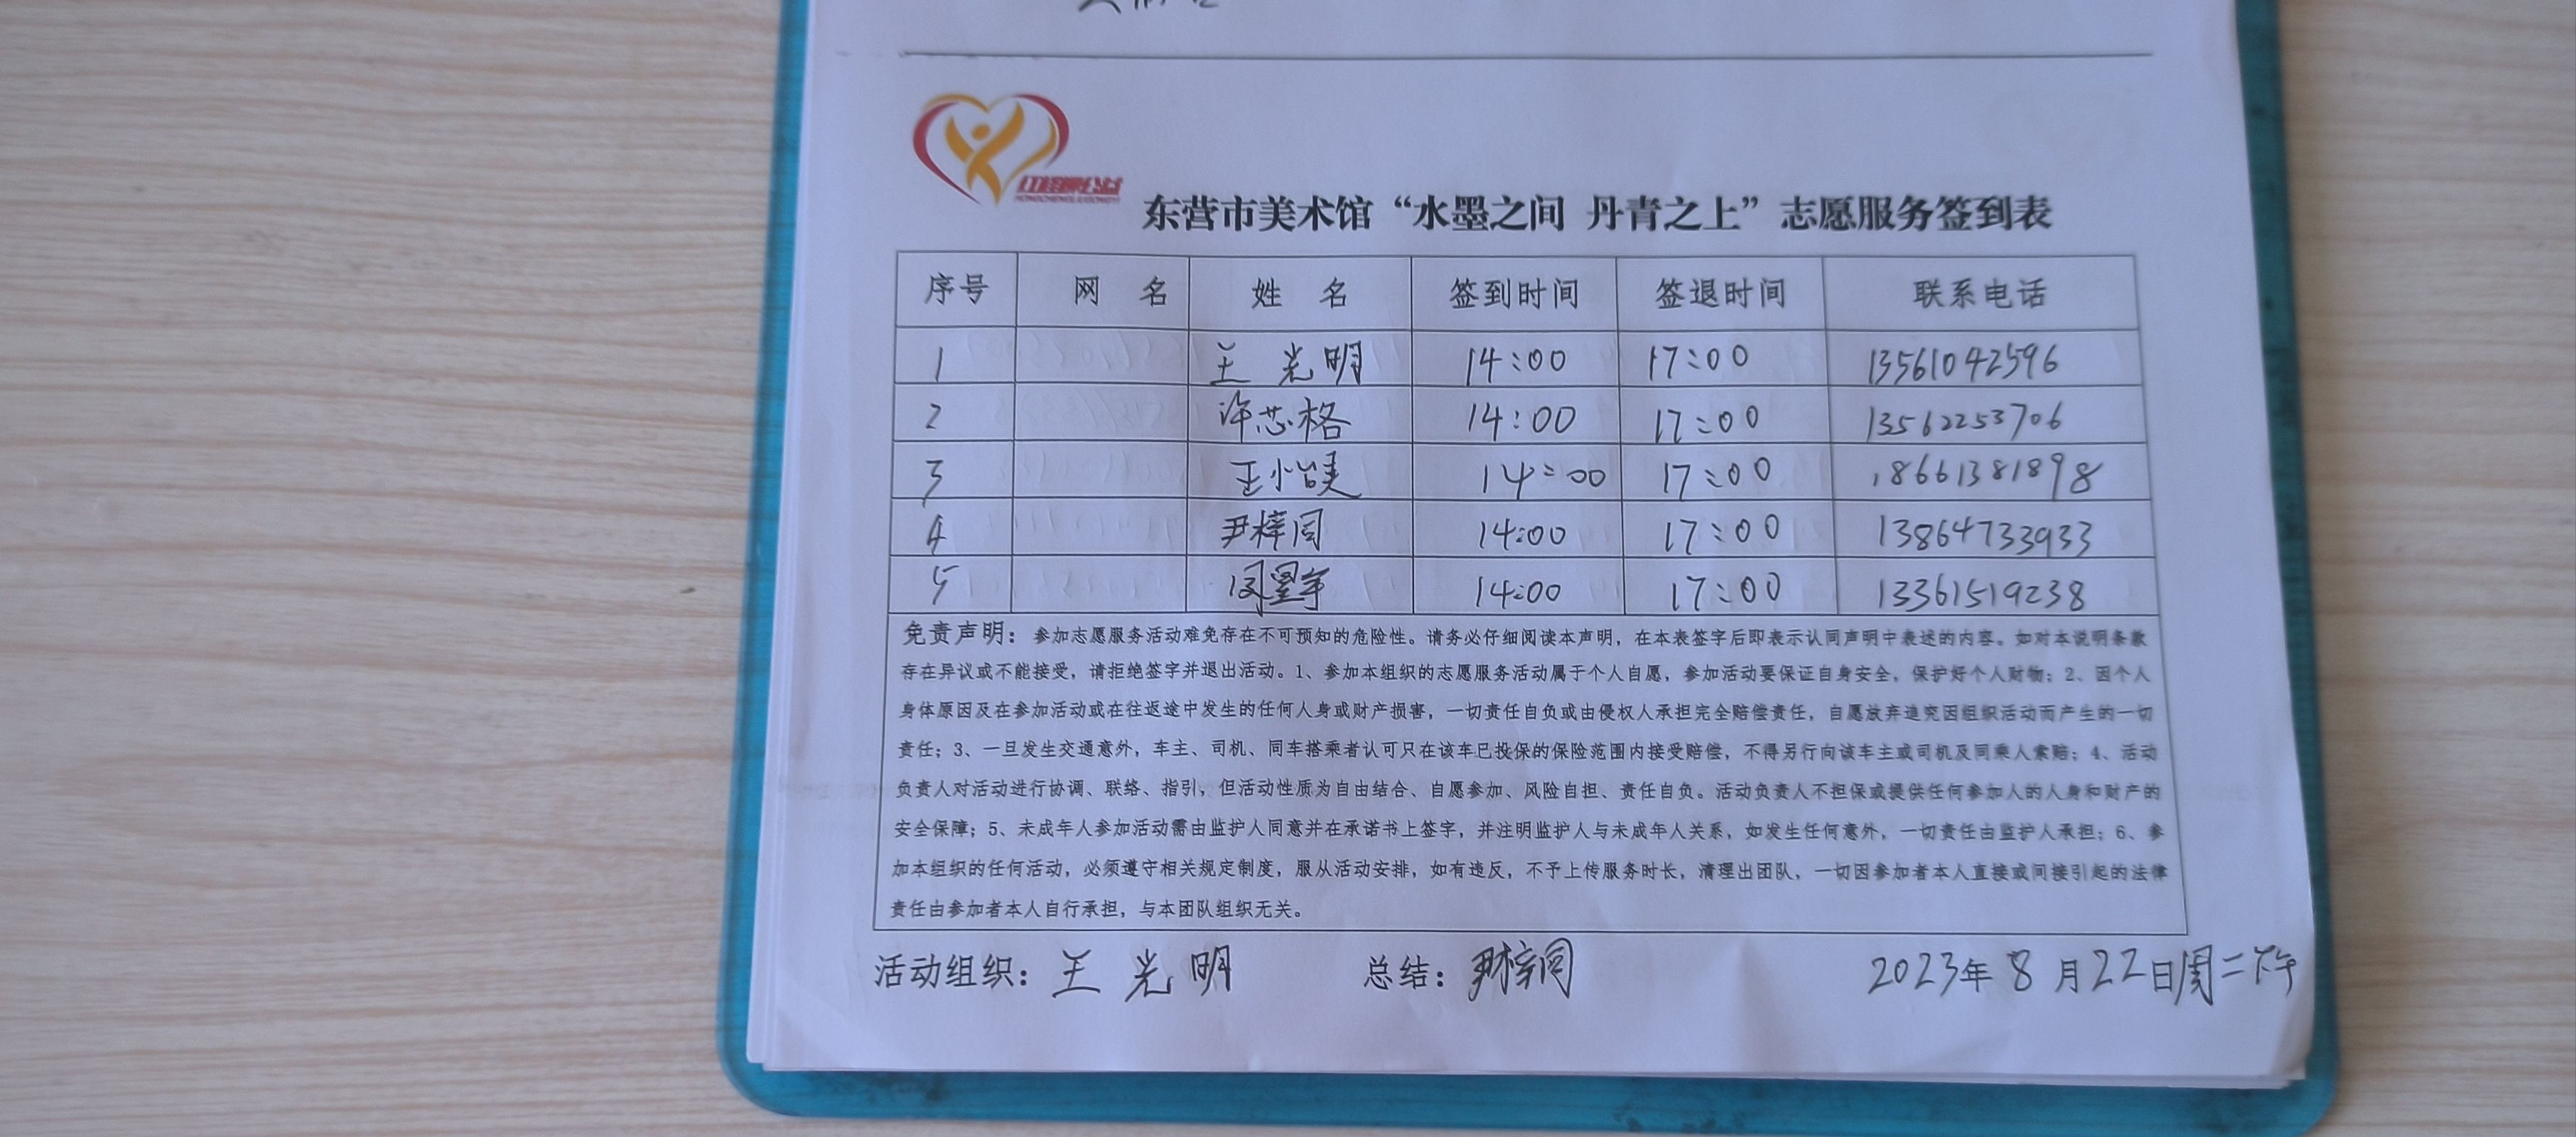 红橙柳公益
东营市美术馆“水墨之间 丹青之上”志愿服务签到表
序号 网 名 姓 名 签到时间 签退时间 联系电话
1 王 光明 14:00 17:00 13561042596
2 许芯格 14:00 17:00 13562253706
3 王小 14:00 17:00 18661381898
4 尹梓同 14:00 17:00 13864733933
5 14:00 17:00 13361519238
免责声明：参加志愿服务活动难免存在不可预知的危险性。请务必仔细阅读本声明，在本表签字后即表示认同声明中表述的内容。如对本说明条款
存在异议或不能接受，请拒绝签字并退出活动。1、参加本组织的志愿服务活动属于个人自愿，参加活动要保证自身安全，保护好个人财物；2、因个人
身体原因及在参加活动或在往返途中发生的任何人身或财产损害，一切责任自负或由侵权人承担完全赔偿责任，自愿放弃追究因组织活动而产生的一切
责任；3、一旦发生交通意外，车主、司机、同车搭乘者认可只在该车已投保的保险范围内接受赔偿，不得另行向该车主或司机及同乘人索赔；4、活动
负责人对活动进行协调、联络、指引，但活动性质为自由结合、自愿参加、风险自担、责任自负。活动负责人不担保或提供任何参加人的人身和财产的
安全保障；5、未成年人参加活动需由监护人同意并在承诺书上签字，并注明监护人与未成年人关系，如发生任何意外，一切责任由监护人承担；6、参
加本组织的任何活动，必须遵守相关规定制度，服从活动安排，如有违反，不予上传服务时长，清理出团队，一切因参加者本人直接或间接引起的法律
责任由参加者本人自行承担，与本团队组织无关。
活动组织：王 光 明 总结：尹梓同 2023年 8 月22日周二下午